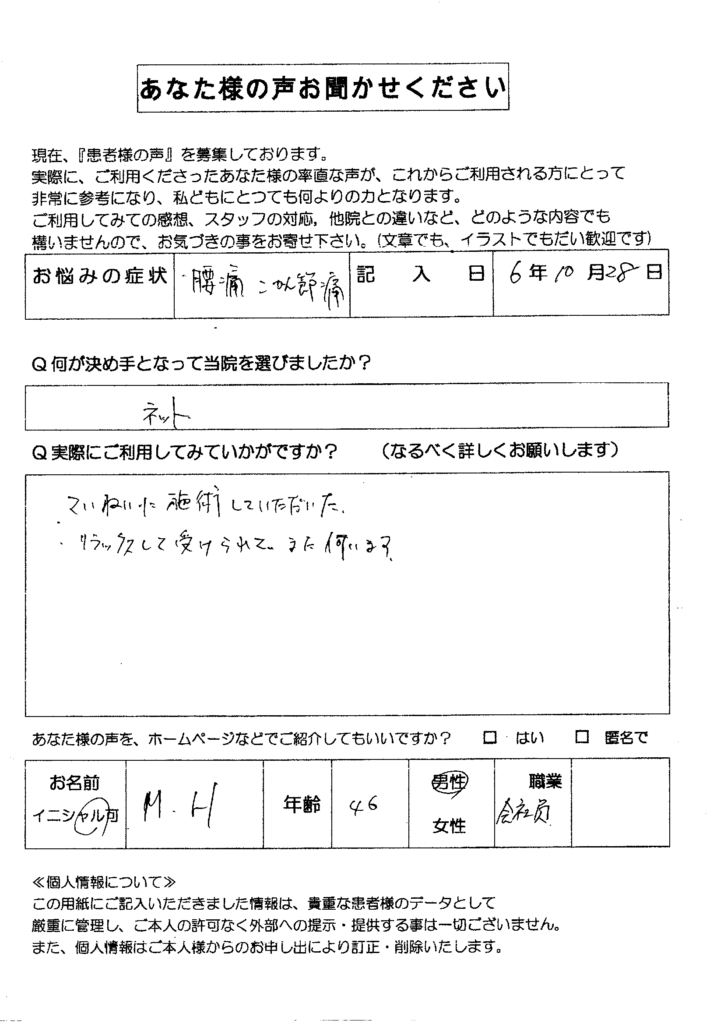 あなた様の声お聞かせください
現在、『患者様の声』を募集しております。
実際に、ご利用くださったあなた様の率直な声が、これからご利用される方にとって
非常に参考になり、私どもにとつても何よりの力となります。
ご利用してみての感想、スタッフの対応，他院との違いなど、どのような内容でも
構いませんので、お気づきの事をお寄せ下さい。(文章でも、イラストでもだい歓迎です)
お悩みの症状 ・腰痛 こかん節痛 記入日 6年10月28日
Q何が決め手となって当院を選びましたか？
ネット
Q実際にご利用してみていかがですか？ （なるべく詳しくお願いします）
ていねいに施術していただいた.
・リラックスして受けられて。また伺います
あなた様の声を、ホームページなどでご紹介してもいいですか？ □ はい □ 匿名で
お名前 イニシャル可 M.H 年齢 46 男性 女性 職業 会社員
≪個人情報について≫
この用紙にご記入いただきました情報は、貴重な患者様のデータとして
厳重に管理し、ご本人の許可なく外部への提示・提供する事は一切ございません。
また、個人情報はご本人様からのお申し出により訂正・削除いたします。